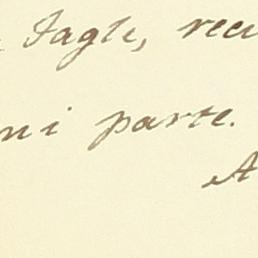 Iagle, recu
ni parte.
A